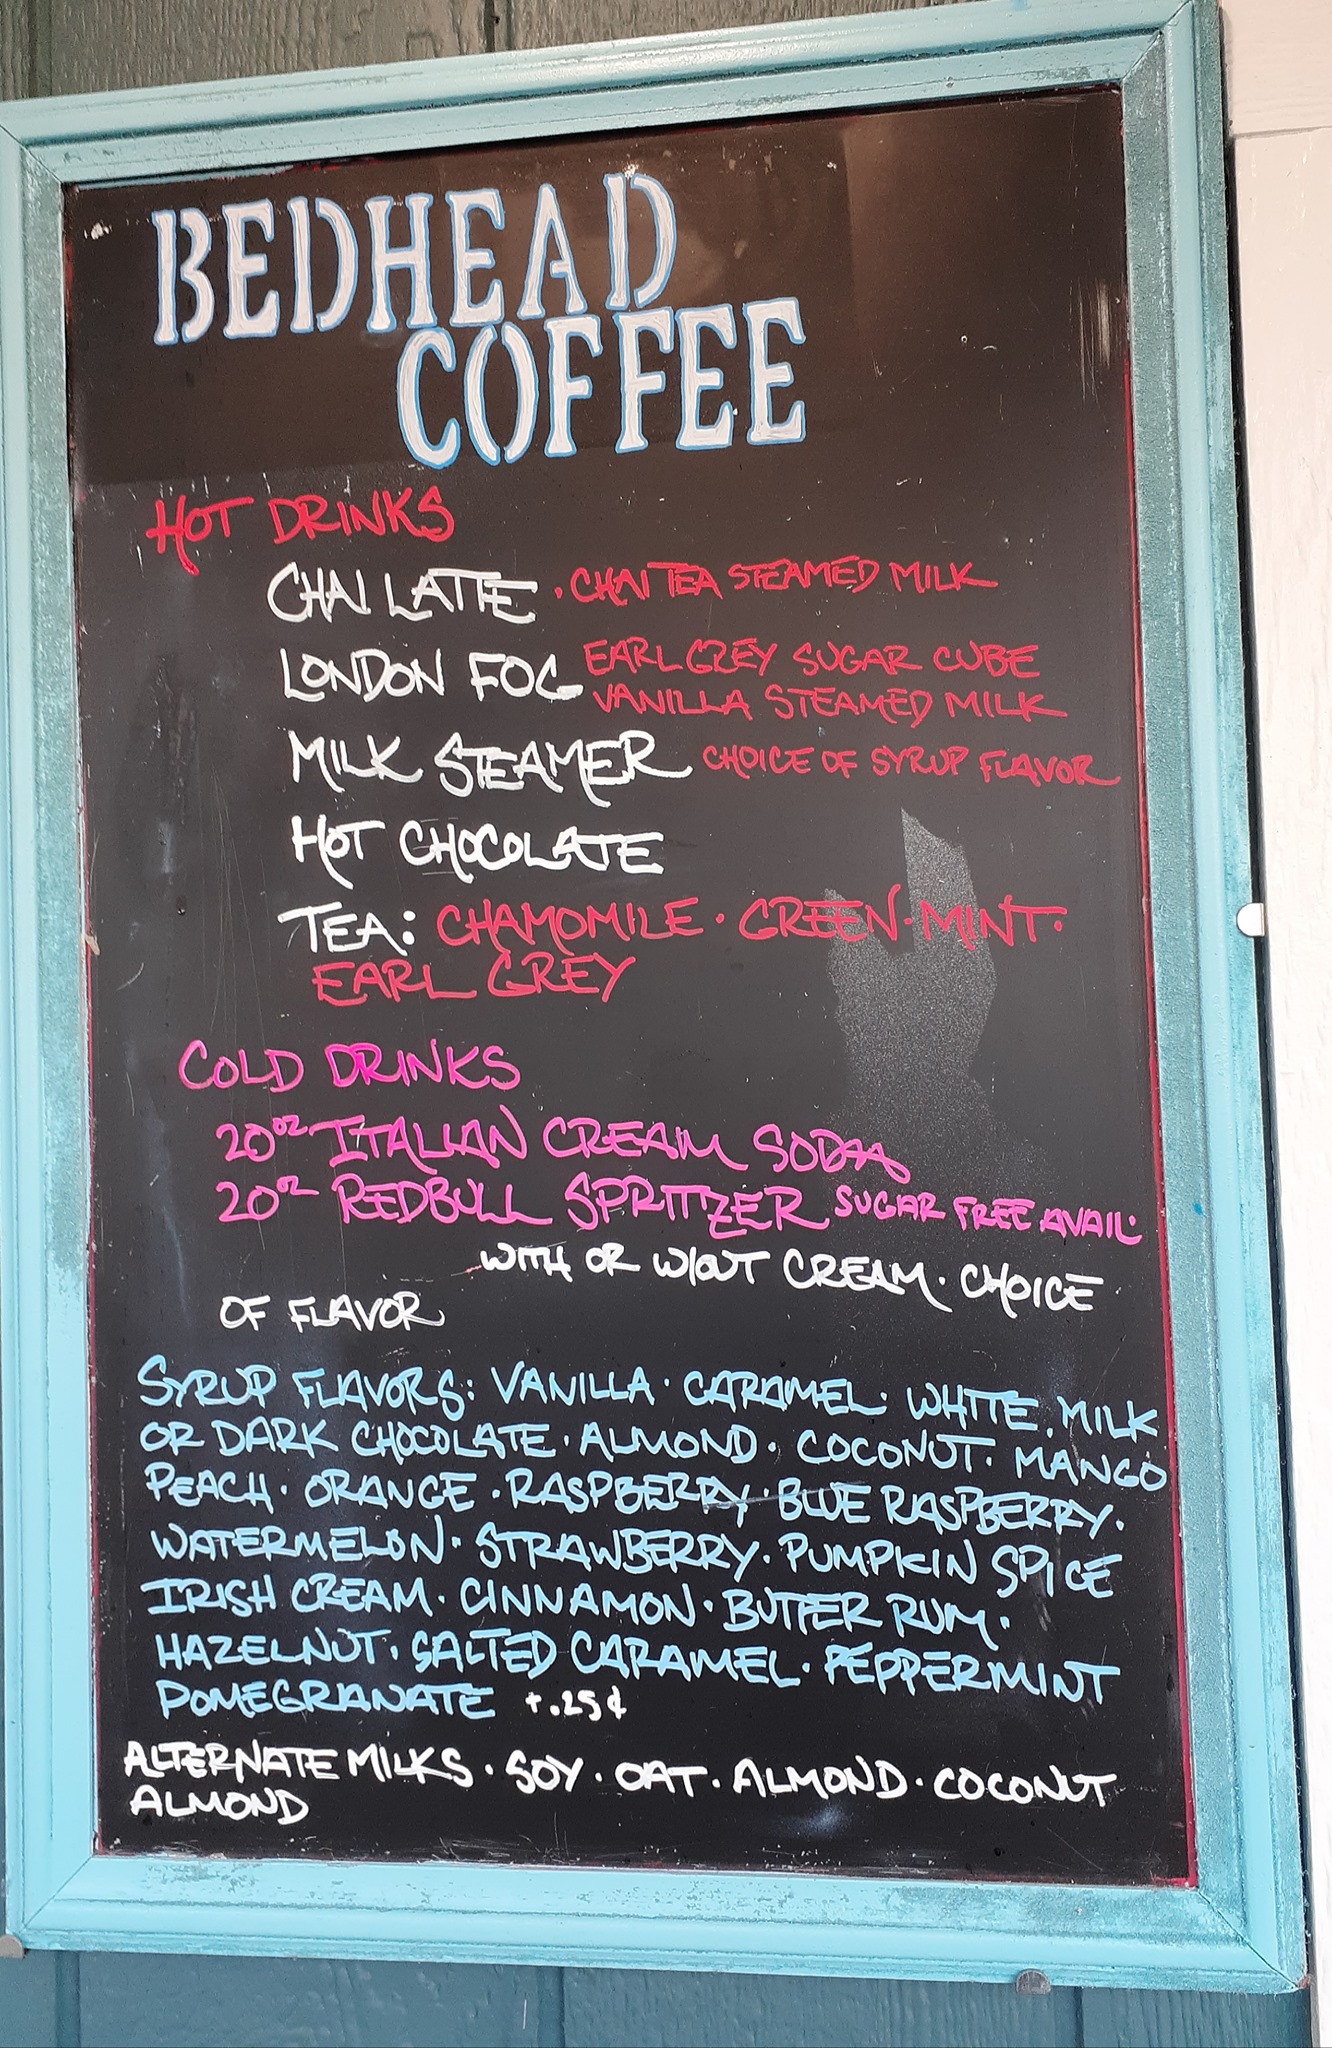 BEDHEAD
COFFEE
HOT DRINKS
CHAI LATTE · CHAI TEA STEAMED MILK
LONDON FOG EARL GREY SUGAR CUBE
VANILLA STEAMED MILK
MILK STEAMER CHOICE OF SYRUP FLAVOR
HOT CHOCOLATE
TEA: CHAMOMILE · GREEN · MINT ·
EARL GREY
COLD DRINKS
20oz ITALIAN CREAM SODA
20oz REDBULL SPRITZER SUGAR FREE AVAIL.
WITH OR W/OUT CREAM · CHOICE
OF FLAVOR
SYRUP FLAVORS: VANILLA · CARAMEL · WHITE, MILK
OR DARK CHOCOLATE · ALMOND · COCONUT · MANGO
PEACH · ORANGE · RASPBERRY · BLUE RASPBERRY ·
WATERMELON · STRAWBERRY · PUMPKIN SPICE
IRISH CREAM · CINNAMON · BUTTER RUM ·
HAZELNUT · SALTED CARAMEL · PEPPERMINT
POMEGRANATE +.25¢
ALTERNATE MILKS · SOY · OAT · ALMOND · COCONUT
ALMOND